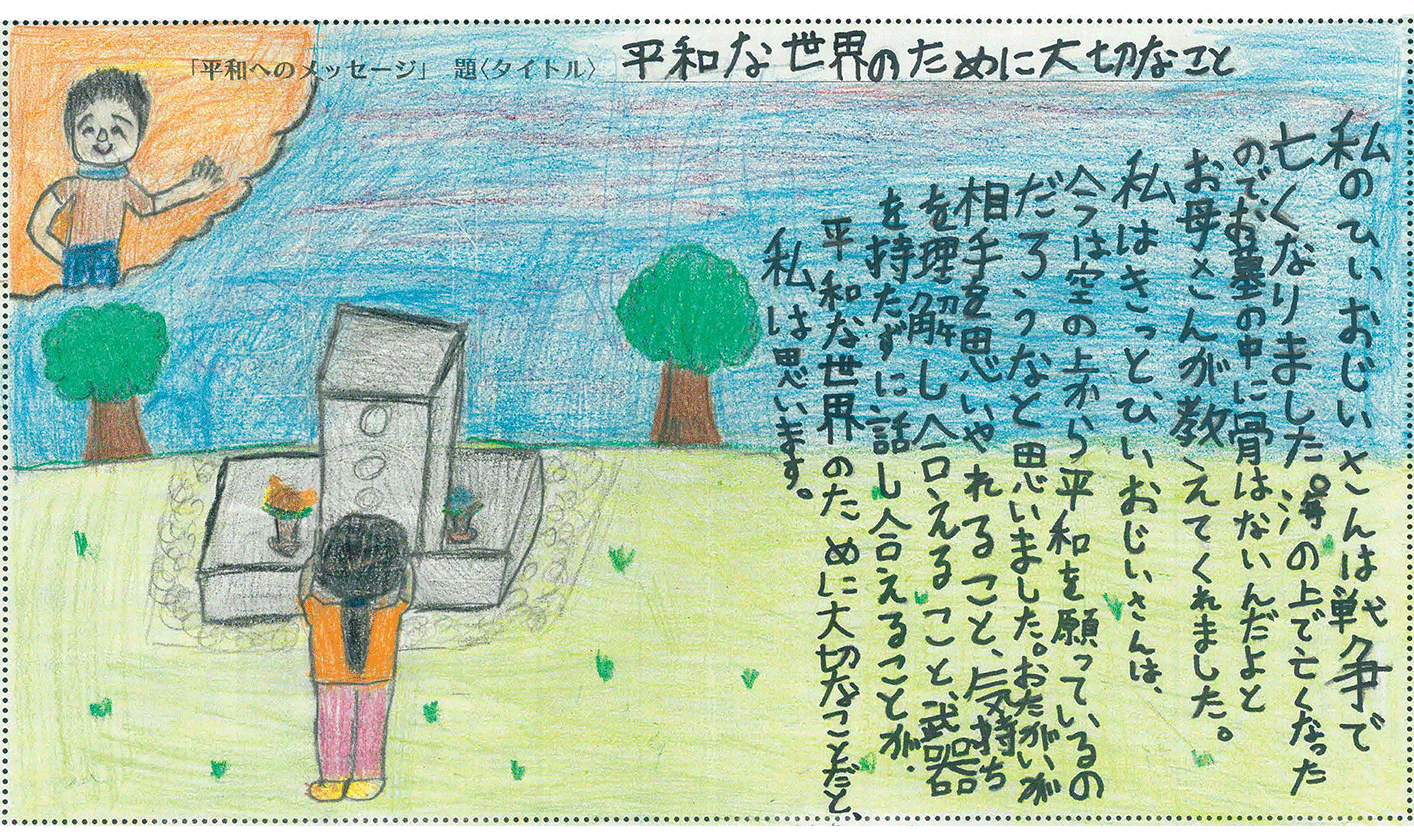 「平和へのメッセージ」 題〈タイトル〉 平和な世界のために大切なこと
私のひいおじいさんは戦争で
亡くなりました。海の上で亡くなった
のでお墓の中に骨はないんだよと
お母さんが教えてくれました。
私はきっと、ひいおじいさんは、
今は空の上から平和を願っているの
だろうなと思いました。おたがいが
相手を思いやれること、気持ち
を理解し合えること、武器
を持たずに話し合えることが、
平和な世界のために大切なことだと、
私は思います。